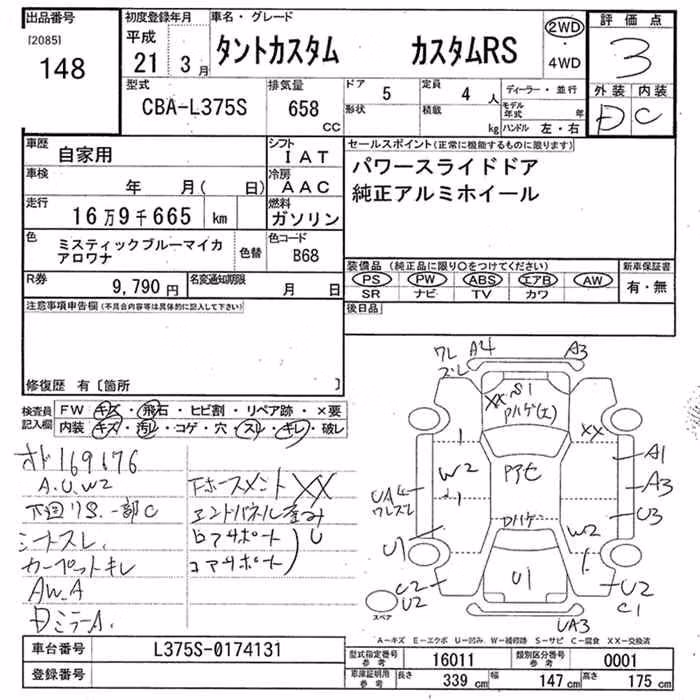 出品番号 初度登録年月 車名・グレード 評価点
[2085] 平成
148 21 3月 タントカスタム カスタムRS 2WD・4WD 3
型式 排気量 ドア 5 定員 4人 ディーラー・並行 外装 内装
CBA-L375S 658 CC 形状 積載 kg モデル年式 年 D C
ハンドル 左・右
車歴 自家用 シフト IAT セールスポイント(正常に機能するものに限ります)
車検 年 月( 日) 冷房 AAC パワースライドドア
走行 16万9千665 km 燃料 ガソリン 純正アルミホイール
色 ミスティックブルーマイカ 色替 色コード
アロワナ B68
装備品(純正品に限り○をつけてください) 新車保証書
R券 9,790円 名変通知期限 月 日 PS PW ABS エアB AW 有・無
SR ナビ TV カワ
注意事項申告欄(不具合内容等は具体的に記入して下さい) 後日品
修復歴 有〔箇所 〕
検査員 FW キズ・飛石・ヒビ割・リペア跡・×要
記入欄 内装 キズ・汚レ・コゲ・穴・スレ・キレ・破レ
オド169176
A.U.W2
下回りS.一部C
シートスレ.
カーペットキレ
AW.A
DミラーA.
Fホースメント XX
エンドパネル歪み
Dコアサポート
コアサポート
U
ワレ
ズレ
A4
A3
XX
S1
Dハゲ(大)
XX
W2
A1
A3
U3
UA4
ワレズレ
U1
Dハゲ
W2
U1
C2
U2
U2
C1
UA3
スペア
A―キズ E―エクボ U―凹み W―補修跡 S―サビ C―腐食 XX―交換済
車台番号 L375S-0174131
登録番号
型式指定番号 参考 16011 類別区分番号 参考 0001
車庫証明用 参考 長さ 339 cm 幅 147 cm 高さ 175 cm